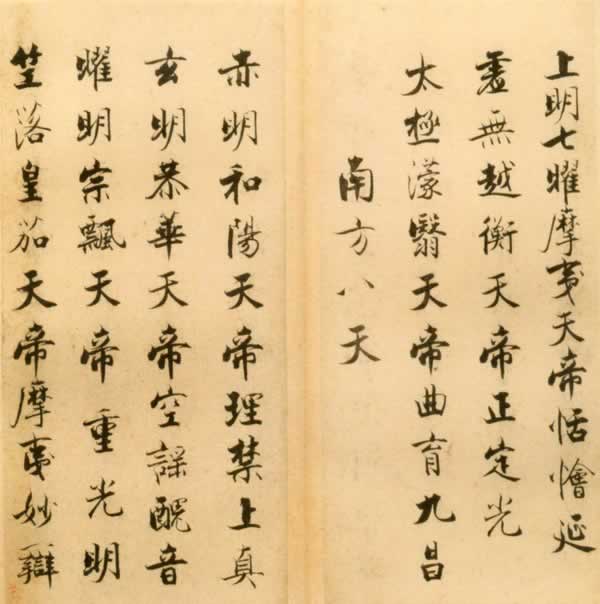 上明七曜摩夷天帝恬懀延
虛無越衡天帝正定光
太極濛翳天帝曲育九昌
南方八天
赤明和陽天帝理禁上真
玄明恭華天帝空謠醜音
燿明宗飄天帝重光明
竺落皇笳天帝摩夷妙辯